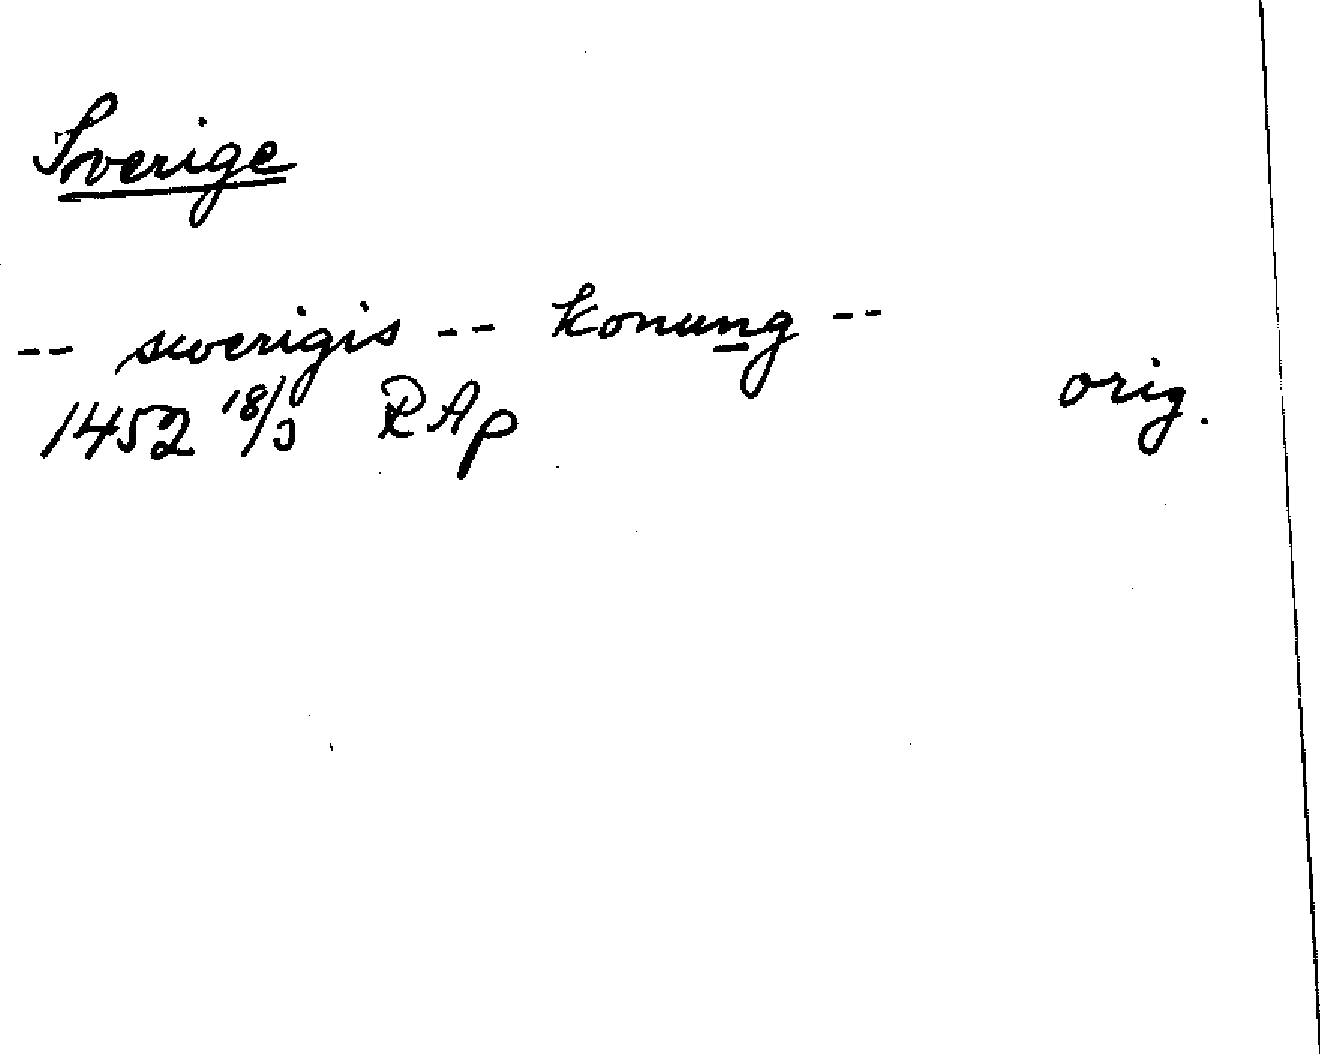 Sverige
-- swerigis -- konung --
1452 18/3 RAp orig.